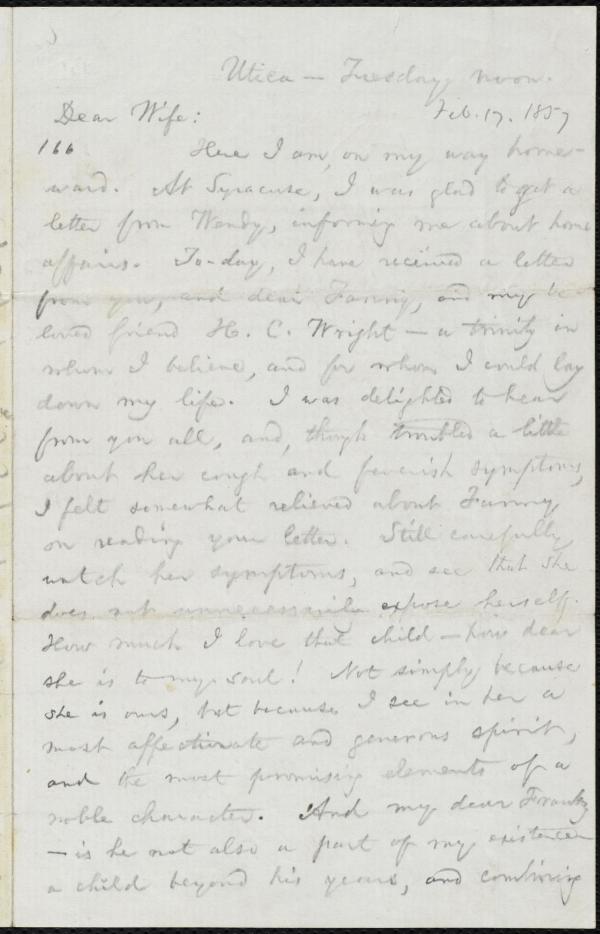 Utica — Tuesday, noon.
Dear Wife: Feb. 17. 1857
166 Here I am, on my way home-
ward. At Syracuse, I was glad to get a
letter from Wendy, informing me about home
affairs. To-day, I have received a letter
from you, and dear Fanny, and my be-
loved friend H. C. Wright — a trinity in
whom I believe, and for whom I could lay
down my life. I was delighted to hear
from you all, and, though troubled a little
about her cough and feverish symptoms,
I felt somewhat relieved about Fanny,
on reading your letter. Still carefully
watch her symptoms, and see that she
does not unnecessarily expose herself.
How much I love that child — how dear
she is to my soul! Not simply because
she is ours, but because I see in her a
most affectionate and generous spirit,
and the most promising elements of a
noble character. And my dear Franky
— is he not also a part of my existence —
a child beyond his years, and combining